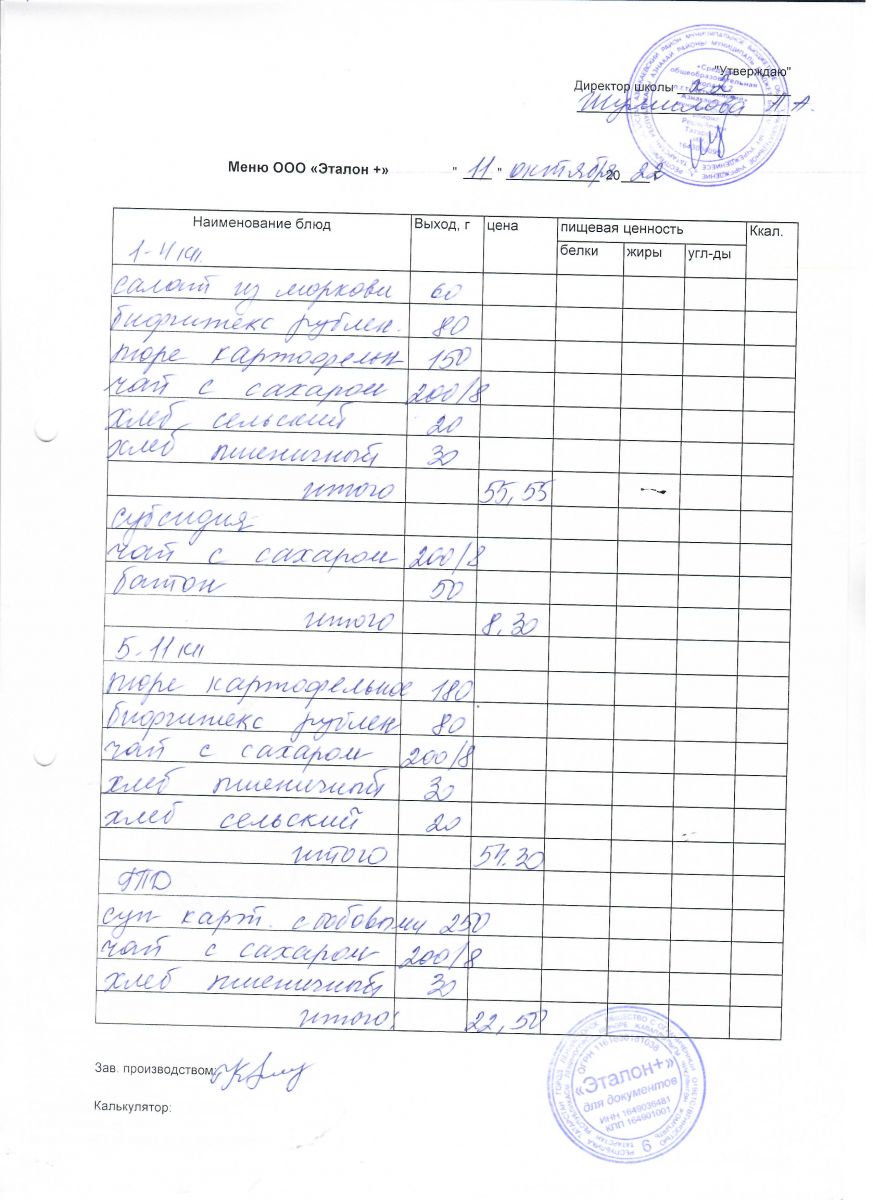 "Утверждаю"
Директор школы
Шурмелова А.А.
Меню ООО «Эталон +» " 11 " октября 20 22 г
Наименование блюд Выход, г цена пищевая ценность Ккал.
белки жиры угл-ды
1-4 кл.
салат из моркови 60
бифштекс рублен. 80
пюре картофельн 150
чай с сахаром 200/8
хлеб сельский 20
хлеб пшеничный 30
итого 55,55
субсидия
чай с сахаром 200/8
батон 50
итого 8,30
5-11 кл
пюре картофельное 180
бифштекс рублен 80
чай с сахаром 200/8
хлеб пшеничный 30
хлеб сельский 20
итого 54.30
ГПД
суп карт. с бобовыми 250
чай с сахаром 200/8
хлеб пшеничный 30
итого: 22,50
Зав. производством:
Калькулятор:
ОГРН 1161690181038
«Эталон+»
для документов
ИНН 1649036481
КПП 164901001